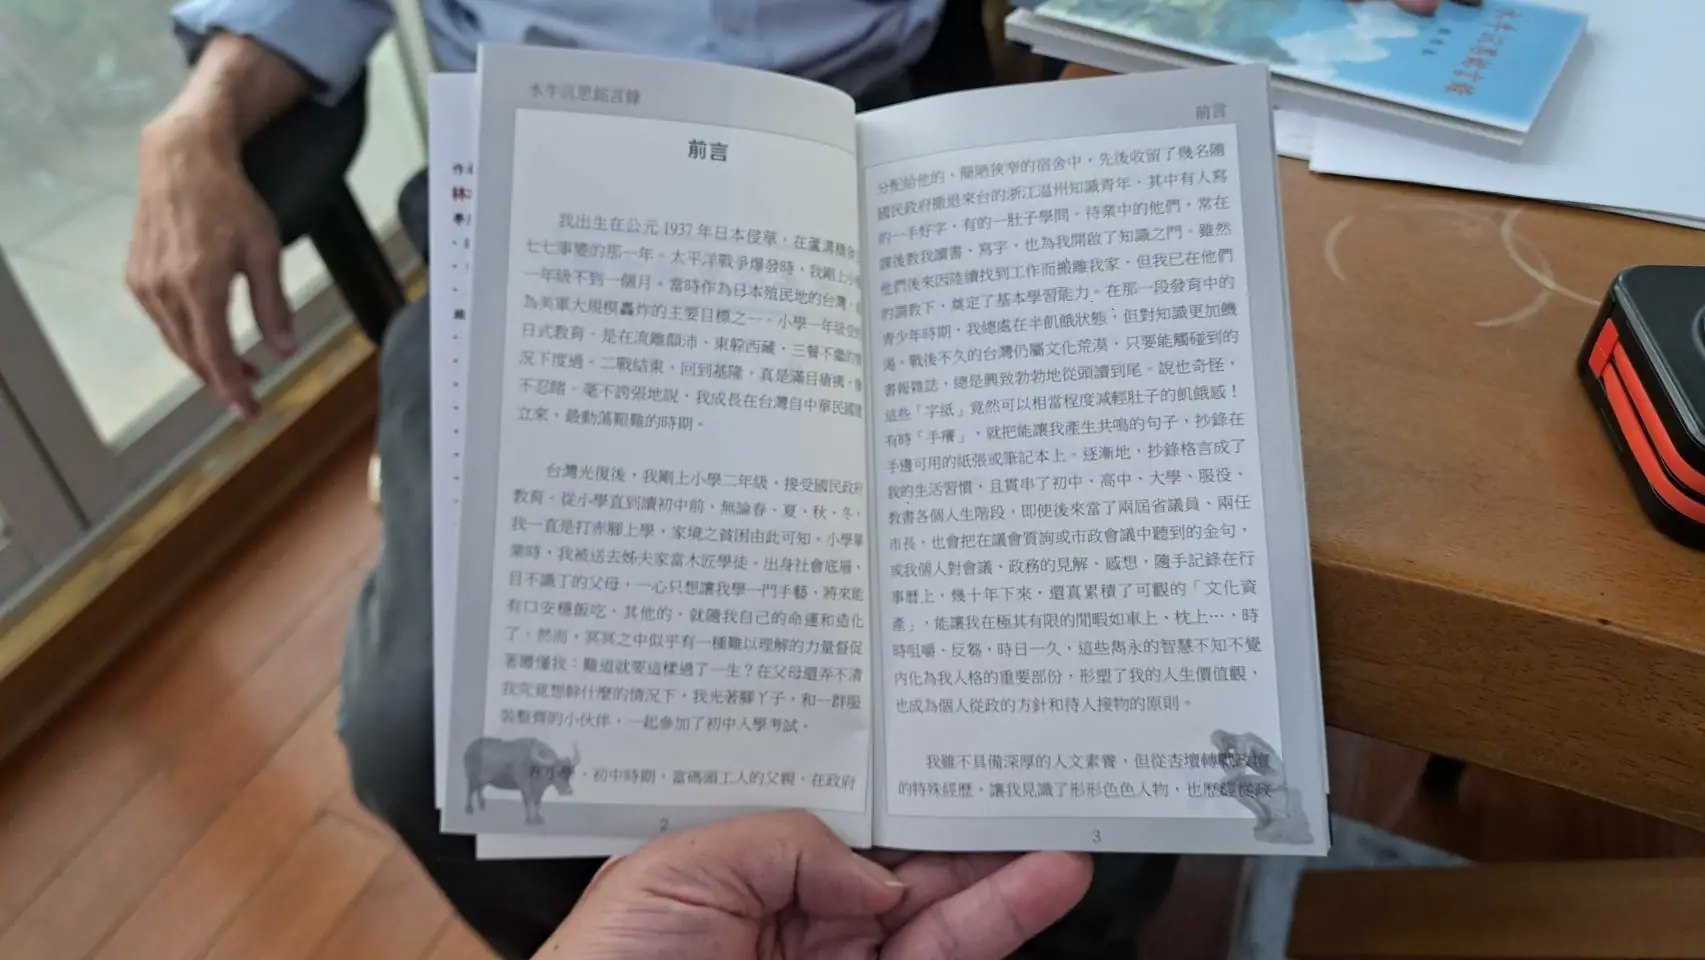 水牛沉思銘言錄
前言
我出生在公元1937年日本侵華，在蘆溝橋
七七事變的那一年。太平洋戰爭爆發時，我剛上小
一年級不到一個月。當時作為日本殖民地的台灣，
為美軍大規模轟炸的主要目標之一。小學一年級受
日式教育，是在流離顛沛、東躲西藏，三餐不繼的
況下度過。二戰結束，回到基隆，真是滿目瘡痍，
不忍睹。毫不誇張地說，我成長在台灣自中華民國建
立來，最動盪艱難的時期。
台灣光復後，我剛上小學二年級，接受國民政府
教育。從小學直到讀初中前，無論春、夏、秋、冬，
我一直是打赤腳上學，家境之貧困由此可知。小學畢
業時，我被送去姊夫家當木匠學徒。出身社會底層、
目不識丁的父母，一心只想讓我學一門手藝，將來能
有口安穩飯吃，其他的，就隨我自己的命運和造化
了。然而，冥冥之中似乎有一種難以理解的力量督促
著懵懂我：難道就要這樣過了一生？在父母還弄不清
我究竟想幹什麼的情況下，我光著腳丫子，和一群服
裝整齊的小伙伴，一起參加了初中入學考試。
在小學、初中時期，當碼頭工人的父親，在政府
2
前言
分配給他的、簡陋狹窄的宿舍中，先後收留了幾名隨
國民政府撤退來台的浙江溫州知識青年，其中有人寫
的一手好字，有的一肚子學問。待業中的他們，常在
課後教我讀書、寫字，也為我開啟了知識之門。雖然
他們後來因陸續找到工作而搬離我家，但我已在他們
的調教下，奠定了基本學習能力。在那一段發育中的
青少年時期，我總處在半飢餓狀態；但對知識更加饑
渴。戰後不久的台灣仍屬文化荒漠，只要能觸碰到的
書報雜誌，總是興致勃勃地從頭讀到尾。說也奇怪，
這些「字紙」竟然可以相當程度減輕肚子的飢餓感！
有時「手癢」，就把能讓我產生共鳴的句子，抄錄在
手邊可用的紙張或筆記本上。逐漸地，抄錄格言成了
我的生活習慣，且貫串了初中、高中、大學、服役、
教書各個人生階段，即使後來當了兩屆省議員、兩任
市長，也會把在議會質詢或市政會議中聽到的金句，
或我個人對會議、政務的見解、感想，隨手記錄在行
事曆上，幾十年下來，還真累積了可觀的「文化資
產」，能讓我在極其有限的閒暇如車上、枕上…，時
時咀嚼、反芻，時日一久，這些雋永的智慧不知不覺
內化為我人格的重要部份，形塑了我的人生價值觀，
也成為個人從政的方針和待人接物的原則。
我雖不具備深厚的人文素養，但從杏壇轉戰政壇
的特殊經歷，讓我見識了形形色色人物，也歷經從政
3
作
林
水牛沉思銘言錄